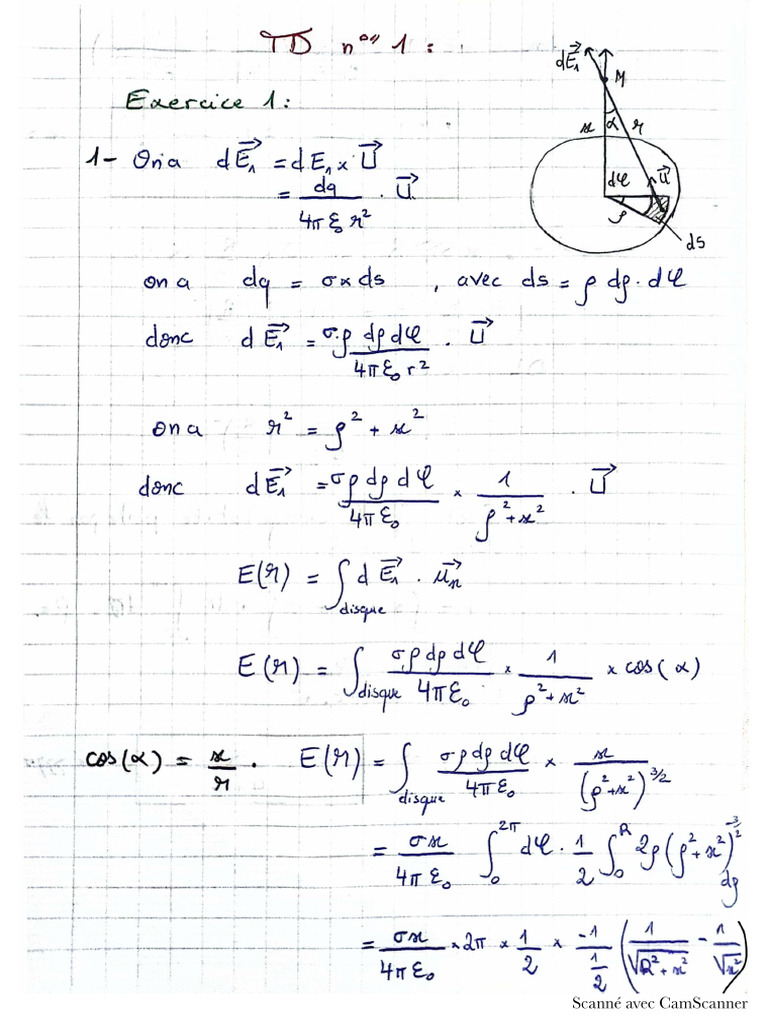 TD n°" 1 :
Exercice 1 :
dE₁→
M
x
α
r
dφ
U→
ρ
ds
1- On a dE₁→ = dE₁ × U→
= dq / 4πε₀ r² . U→
on a dq = σ × ds , avec ds = ρ dρ . dφ
donc dE₁→ = σ.ρ dρ dφ / 4πε₀ r² . U→
on a r² = ρ² + x²
donc dE₁→ = σρ dρ dφ / 4πε₀ × 1 / ρ²+x² . U→
E(r) = ∫disque dE₁→ . uₓ→
E(r) = ∫disque σρ dρ dφ / 4πε₀ × 1 / ρ²+x² × cos(α)
cos(α) = x / r . E(r) = ∫disque σρ dρ dφ / 4πε₀ × x / (ρ²+x²)^3/2
= σx / 4πε₀ ∫₀^2π dφ . 1/2 ∫₀^R 2ρ (ρ²+x²)^-3/2 dρ
= σx / 4πε₀ × 2π × 1/2 × -1 / 1/2 (1 / √R²+x² - 1 / √x²)
Scanné avec CamScanner